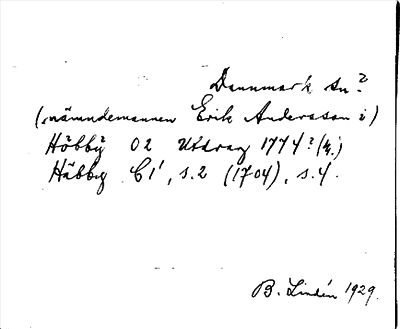 Danmark sn?
(nämndemannen Erik Andersson i)
Höbby O2 Utdrag 1774? (4.)
Häbby C1, s.2 (1704), s.4.
B. Lindén 1929.